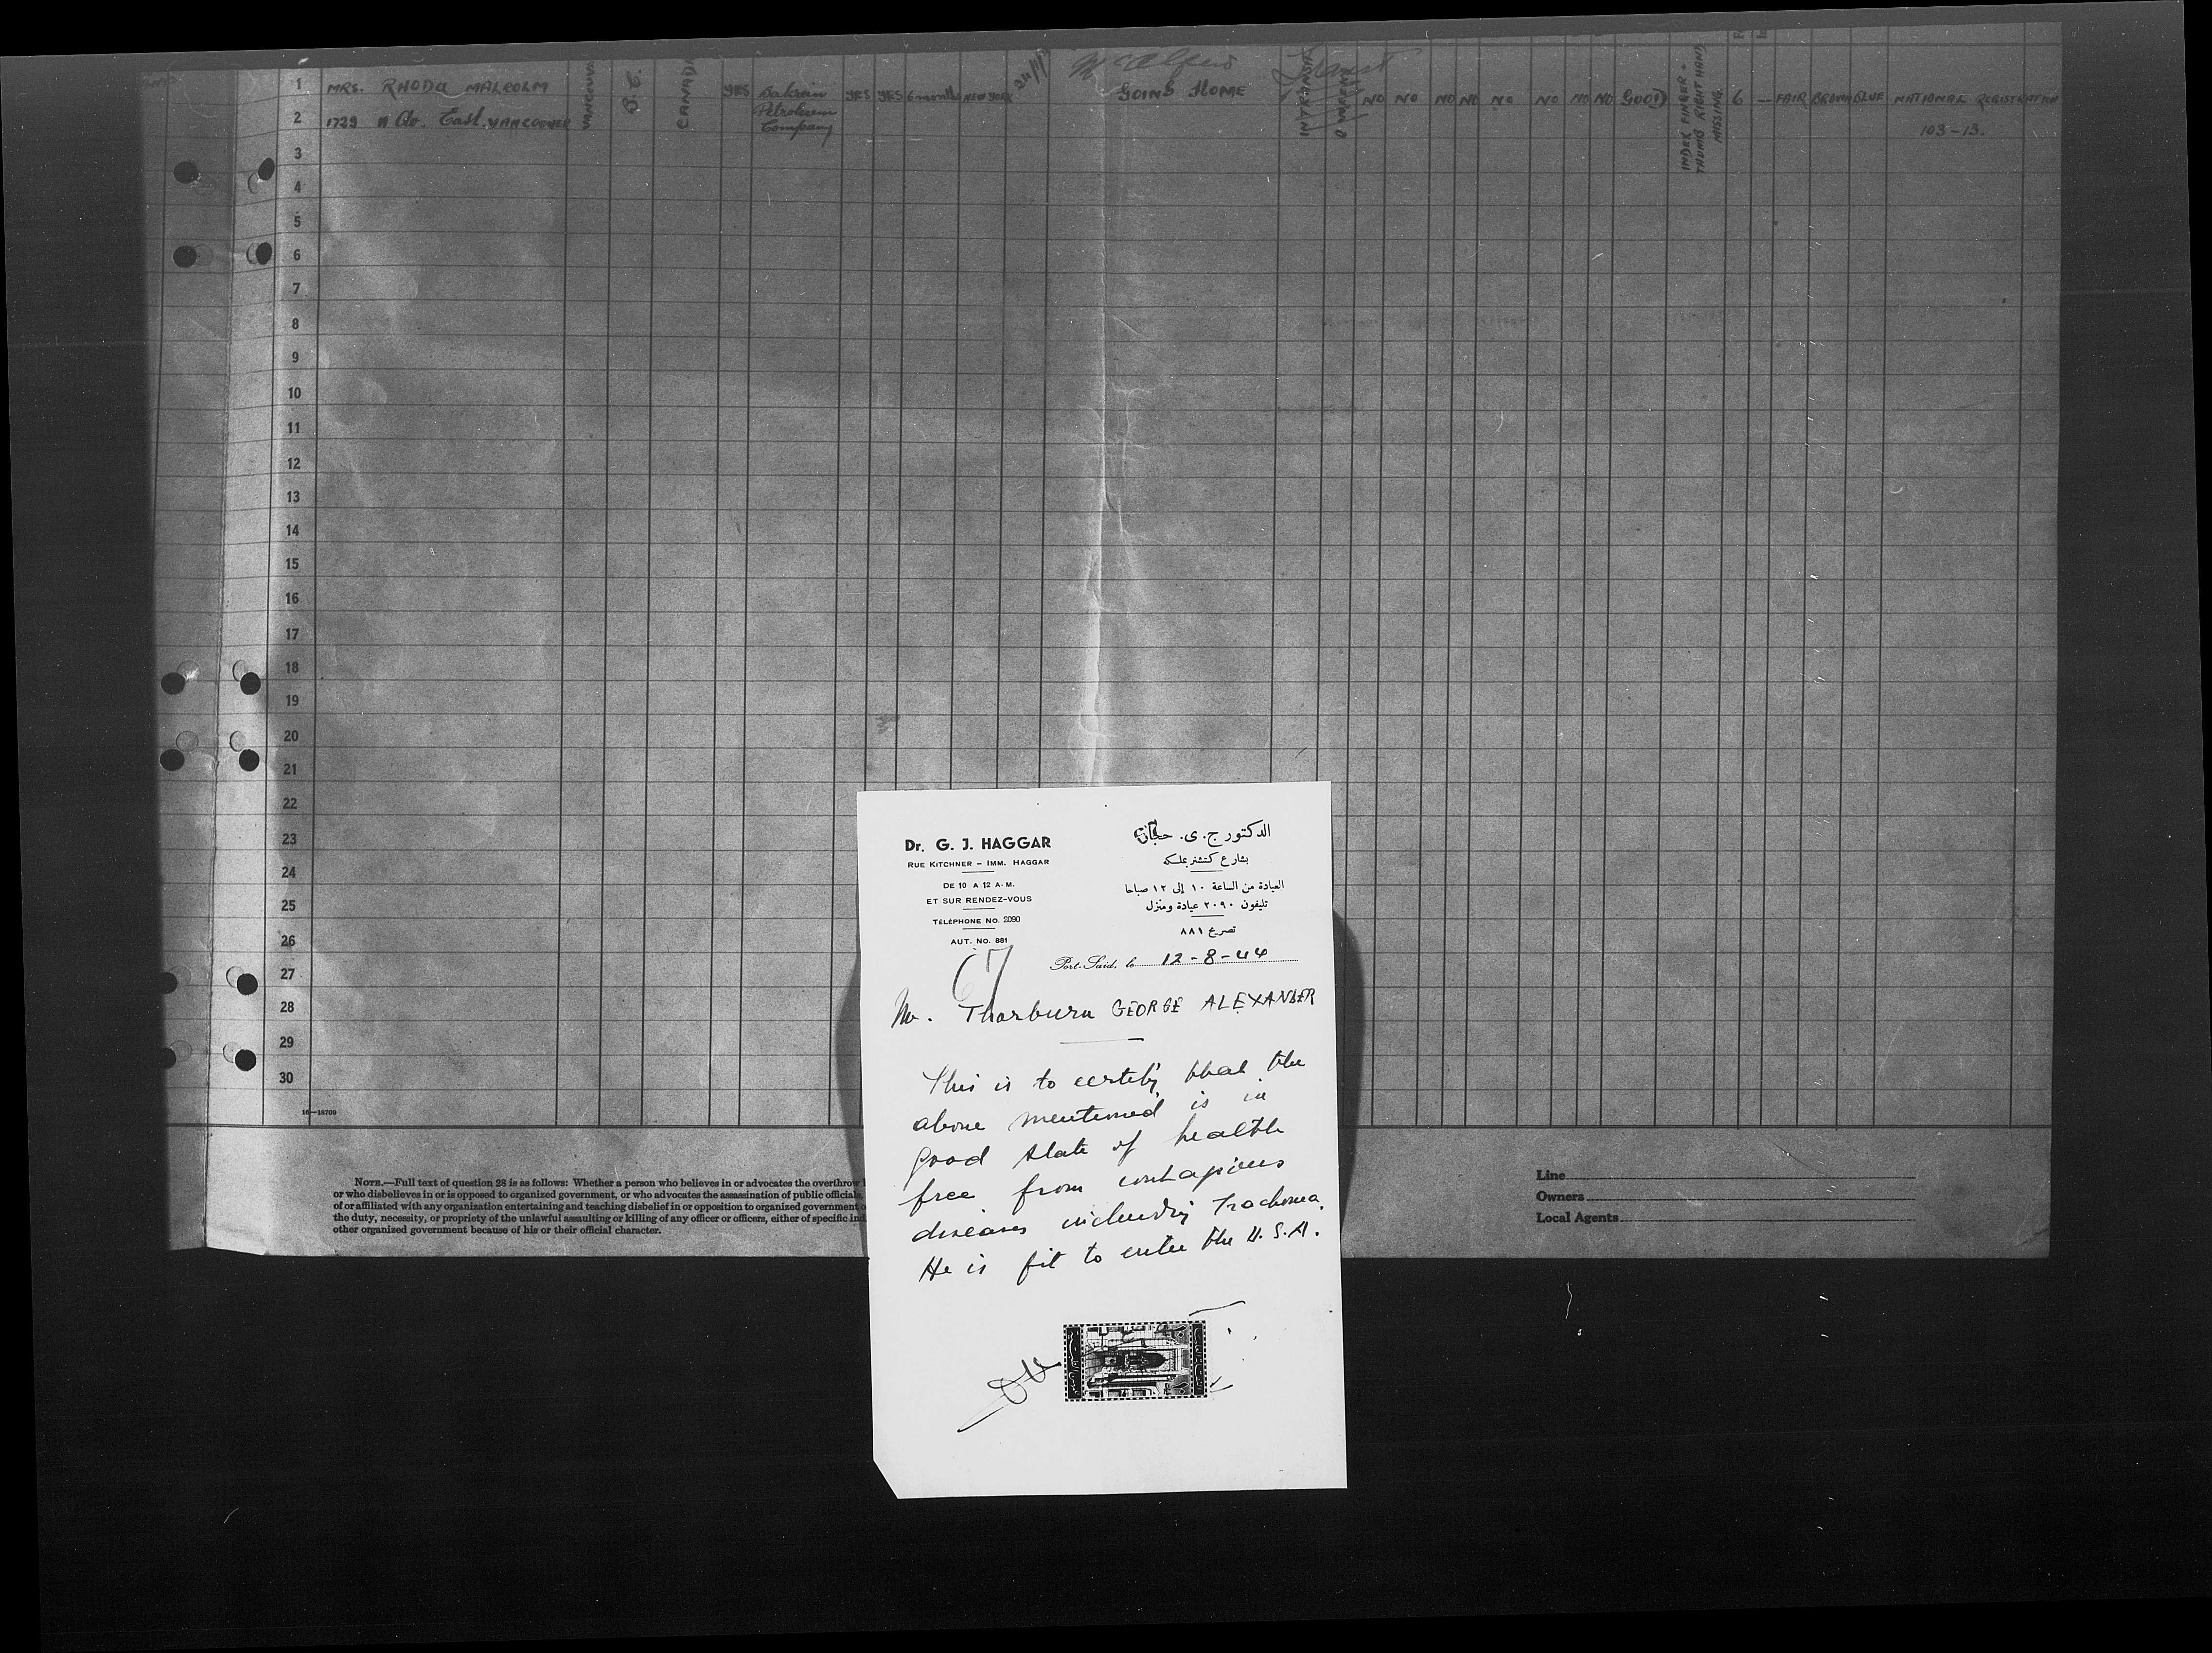 MRS. RHODA MALCOLM VANCOUVER B.C. CANADA YES Bahrein Petroleum Company YES YES 6 months NEW YORK GOING HOME IN TRANSIT NO NO NO NO NO NO NO NO GOOD INDEX FINGER - THUMB RIGHT HAND MISSING 6 — FAIR BROWN BLUE NATIONAL REGISTRATION
1729 East. VANCOUVER 103-13.
1
2
3
4
5
6
7
8
9
10
11
12
13
14
15
16
17
18
19
20
21
22
23
24
25
26
27
28
29
30
16—18709
NOTE.—Full text of question 28 is as follows: Whether a person who believes in or advocates the overthrow
or who disbelieves in or is opposed to organized government, or who advocates the assassination of public officials,
of or affiliated with any organization entertaining and teaching disbelief in or opposition to organized government
the duty, necessity, or propriety of the unlawful assaulting or killing of any officer or officers, either of specific ind
other organized government because of his or their official character.
Line
Owners
Local Agents
Dr. G. J. HAGGAR
RUE KITCHNER – IMM. HAGGAR
DE 10 A 12 A.M.
ET SUR RENDEZ-VOUS
TÉLÉPHONE NO. 2090
AUT. NO. 881
الدكتور ج. ى. حجار
بشارع كتشنر بملكه
العيادة من الساعة ١٠ إلى ١٢ صباحا
تليفون ٢٠٩٠ عيادة ومنزل
تصريح ٨٨١
67
Port-Said, le 12-8-44
Mr. Thorburn GEORGE ALEXANDER
This is to certify that the
above mentioned is in
good state of health
free from contagious
diseases including Trachoma.
He is fit to enter the U.S.A.